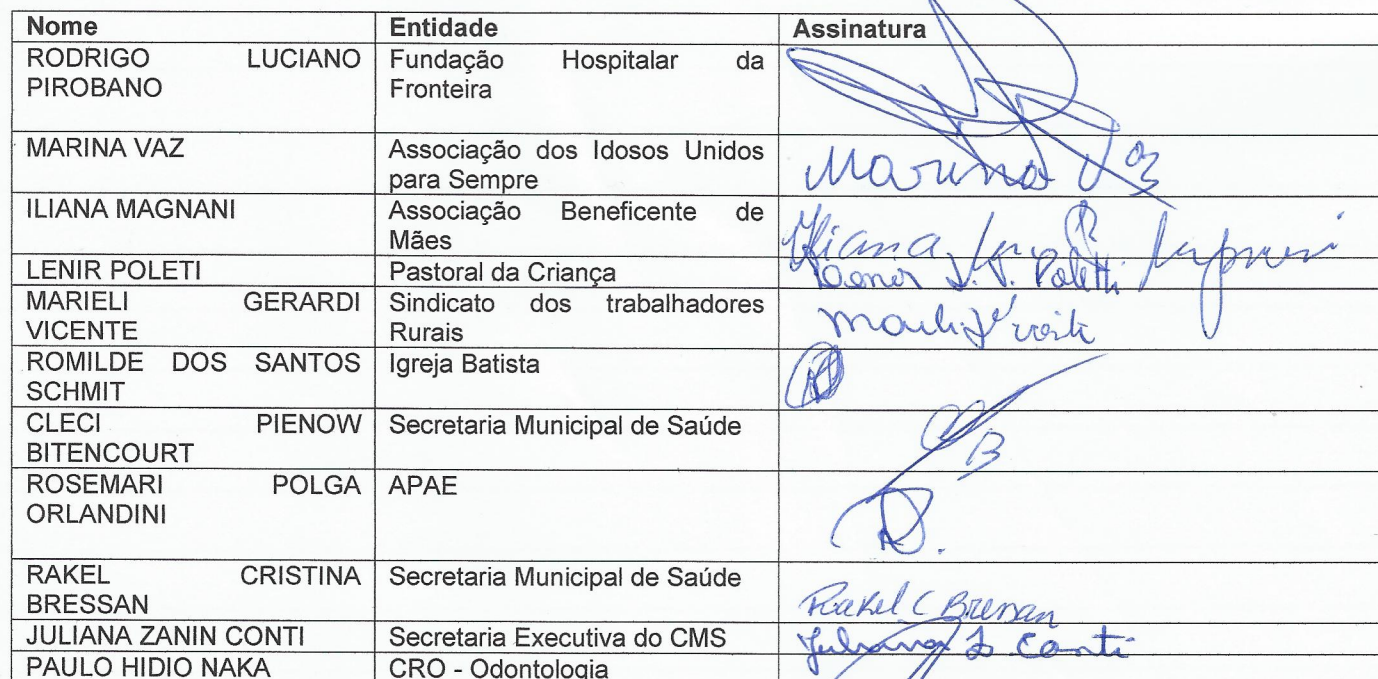 Nome Entidade Assinatura
RODRIGO LUCIANO Fundação Hospitalar da
PIROBANO Fronteira
MARINA VAZ Associação dos Idosos Unidos
para Sempre Marina Vaz
ILIANA MAGNANI Associação Beneficente de
Mães Iliana
LENIR POLETI Pastoral da Criança Lenir Poletti
MARIELI GERARDI Sindicato dos trabalhadores
VICENTE Rurais
ROMILDE DOS SANTOS Igreja Batista
SCHMIT
CLECI PIENOW Secretaria Municipal de Saúde
BITENCOURT B
ROSEMARI POLGA APAE
ORLANDINI
RAKEL CRISTINA Secretaria Municipal de Saúde
BRESSAN Rakel C Bressan
JULIANA ZANIN CONTI Secretaria Executiva do CMS Juliana Z Conti
PAULO HIDIO NAKA CRO - Odontologia